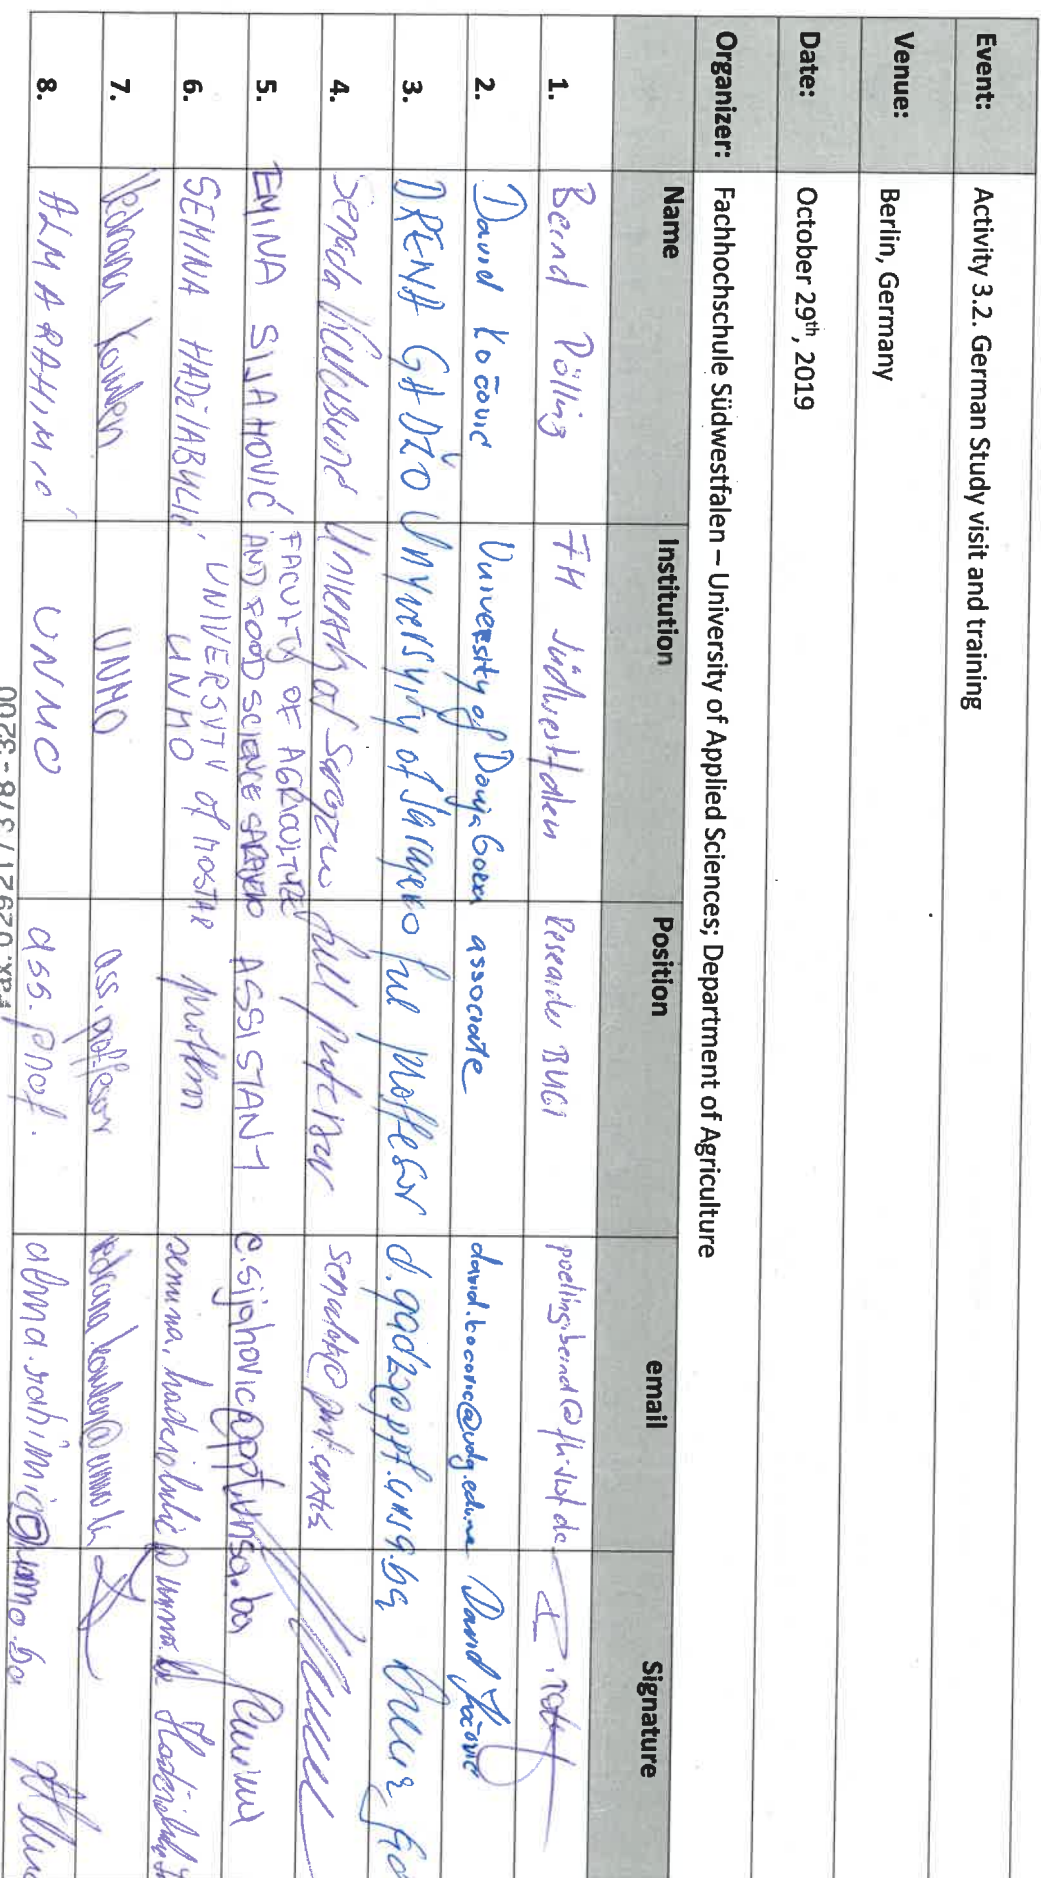 Event: Activity 3.2. German Study visit and training
Venue: Berlin, Germany
Date: October 29th, 2019
Organizer: Fachhochschule Südwestfalen – University of Applied Sciences; Department of Agriculture
Name Institution Position email Signature
1. Bernd Pölling FH Südwestfalen
2. David Kočović University of Donja Gorica associate david.kocovic@udg.edu.me David Kočović
3. DRENA GADŽO University of Sarajevo full professor d.gadzo@ppf.unsa.ba
4. Senada University of Sarajevo full professor
5. EMINA SIJAHOVIĆ FACULTY OF AGRICULTURE
AND FOOD SCIENCE SARAJEVO ASSISTANT e.sijahovic@ppf.unsa.ba
6. SEMINA HADŽIABULIĆ UNIVERSITY of MOSTAR
UNMO
7. Vedrana UNMO ass. professor
8. ALMA RAHIMIĆ UNMO ass. prof. alma.rahimic@unmo.ba
Fax: 02921 / 378 - 3200